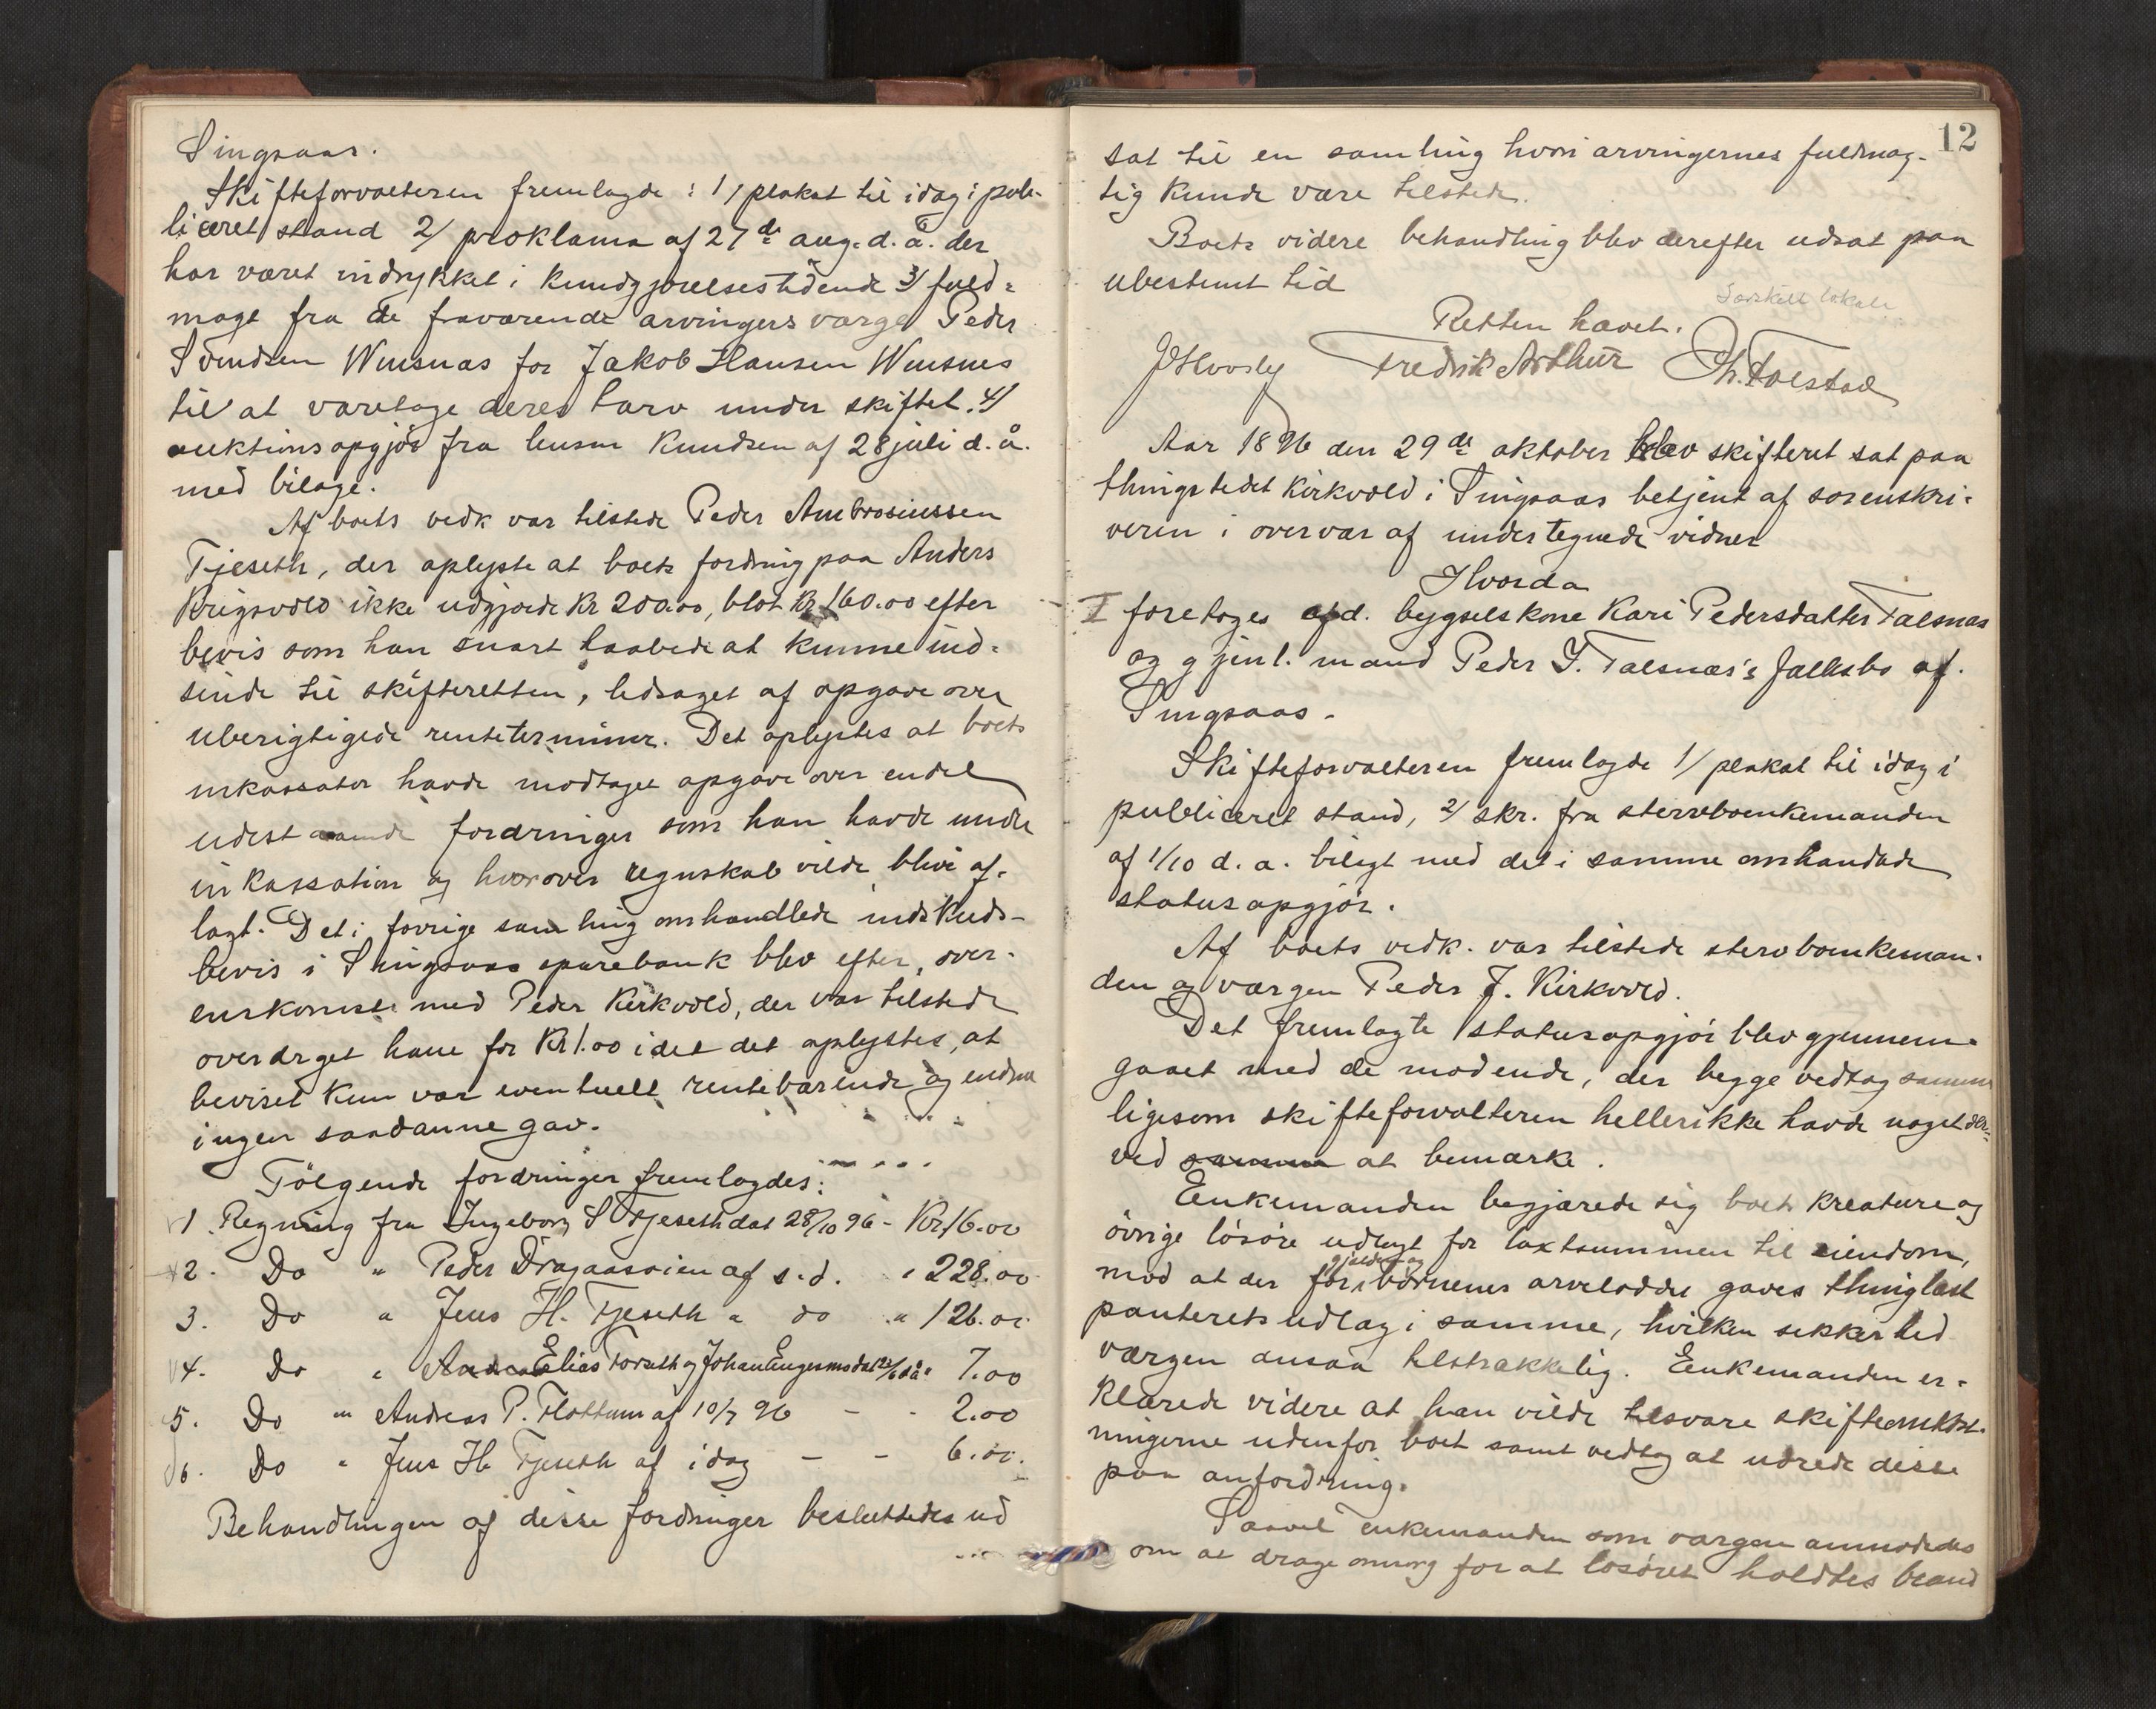 Singsaas.
Skifteforvalteren fremlagde: 1/ plakat til idag i pub-
liceret stand 2/ proklama af 27de aug. d. å. der
har været indrykket i Kundgjørelsestidende 3/ fuld-
magt fra de fraværende arvingers værge Peder
Svendsen Winsnæs for Jakob Hansen Winsnes
til at varetage deres tarv under skiftet. 4/
auktionsopgjør fra lensm Knudsen af 28 juli d. å.
med bilage.
Af boets vedk var tilstede Peder Ambrosiussen
Fjeseth, der oplyste at boets fordring paa Anders
Krigsvold ikke udgjorde Kr 200.00, blot Kr 160.00 efter
bevis som han snart haabede at kunne ind-
sende til skifteretten, ledsaget af opgave over
uberigtigede renteterminer. Det oplystes at boets
inkassator havde modtaget opgave over endel
udestaaende fordringer som han havde under
inkassation og hvorover regnskab vilde blive af-
lagt. Det i forrige samling omhandlede indskuds-
bevis i Singsaas sparebank blev efter over-
enskomst med Peder Kirkvold, der var tilstede
overdraget ham for Kr 1.00 idet det oplystes, at
beviset kun var eventuelt rentebærende og endnu
ingen saadanne gav.
Følgende fordringer fremlagdes:
1. Regning fra Ingeborg S Fjeseth dat 28/10 96 - Kr. 16.00
2. Do " Peder Dragaasøien af s. d. " 228.00
3. Do " Jens H. Fjeseth " do " 126.00
4. Do " Elias Forseth og Johan Engen 7.00
5. Do " Andreas P. Flottum af 10/7 96 - - 2.00
6. Do " Jens H. Fjeseth af idag - - 6.00.
Behandlingen af disse fordringer besluttedes ud
12
sat til en samling hvori arvingernes fuldmæg-
tig kunde være tilstede.
Boets videre behandling blev derefter udsat paa
ubestemt tid
Særskilt lokale
Retten hævet.
Fredrik Arthur
Aar 1896 den 29de oktober blev skifteret sat paa
thingstedet Kirkvold i Singsaas betjent af sorenskri-
veren i overvær af undertegnede vidner
Hvorda
I foretoges afd. bygselskone Kari Pedersdatter Talsnæs
og gjenl. mand Peder J. Talsnæs's fællesbo af
Singsaas.
Skifteforvalteren fremlagde 1/ plakat til idag i
publiceret stand, 2/ skr. fra stervboenkemanden
af 1/10 d. a. bilagt med det i samme omhandlede
statusopgjør.
Af boets vedk. var tilstede stervboenkeman-
den og værgen Peder J. Kirkvold.
Det fremlagte statusopgjør blev gjennem-
gaaet med de mødende, der begge vedtog samme
ligesom skifteforvalteren heller ikke havde noget der-
ved at bemærke.
Enkemanden begjærede sig boets kreature og
øvrige løsøre udlagt for taxtsummen til eiendom,
mod at der for gjælden og børnenes arvelodder gaves thinglæst
panteretsudlæg i samme, hvilken sikkerhed
værgen ansaa tilstrækkelig. Enkemanden er-
klærede videre at han vilde tilsvare skifteomkost-
ningerne udenfor boet samt vedtog at udrede disse
paa anfordring.
Saavel enkemanden som værgen anmodedes
om at drage omsorg for at løsøret holdtes brand